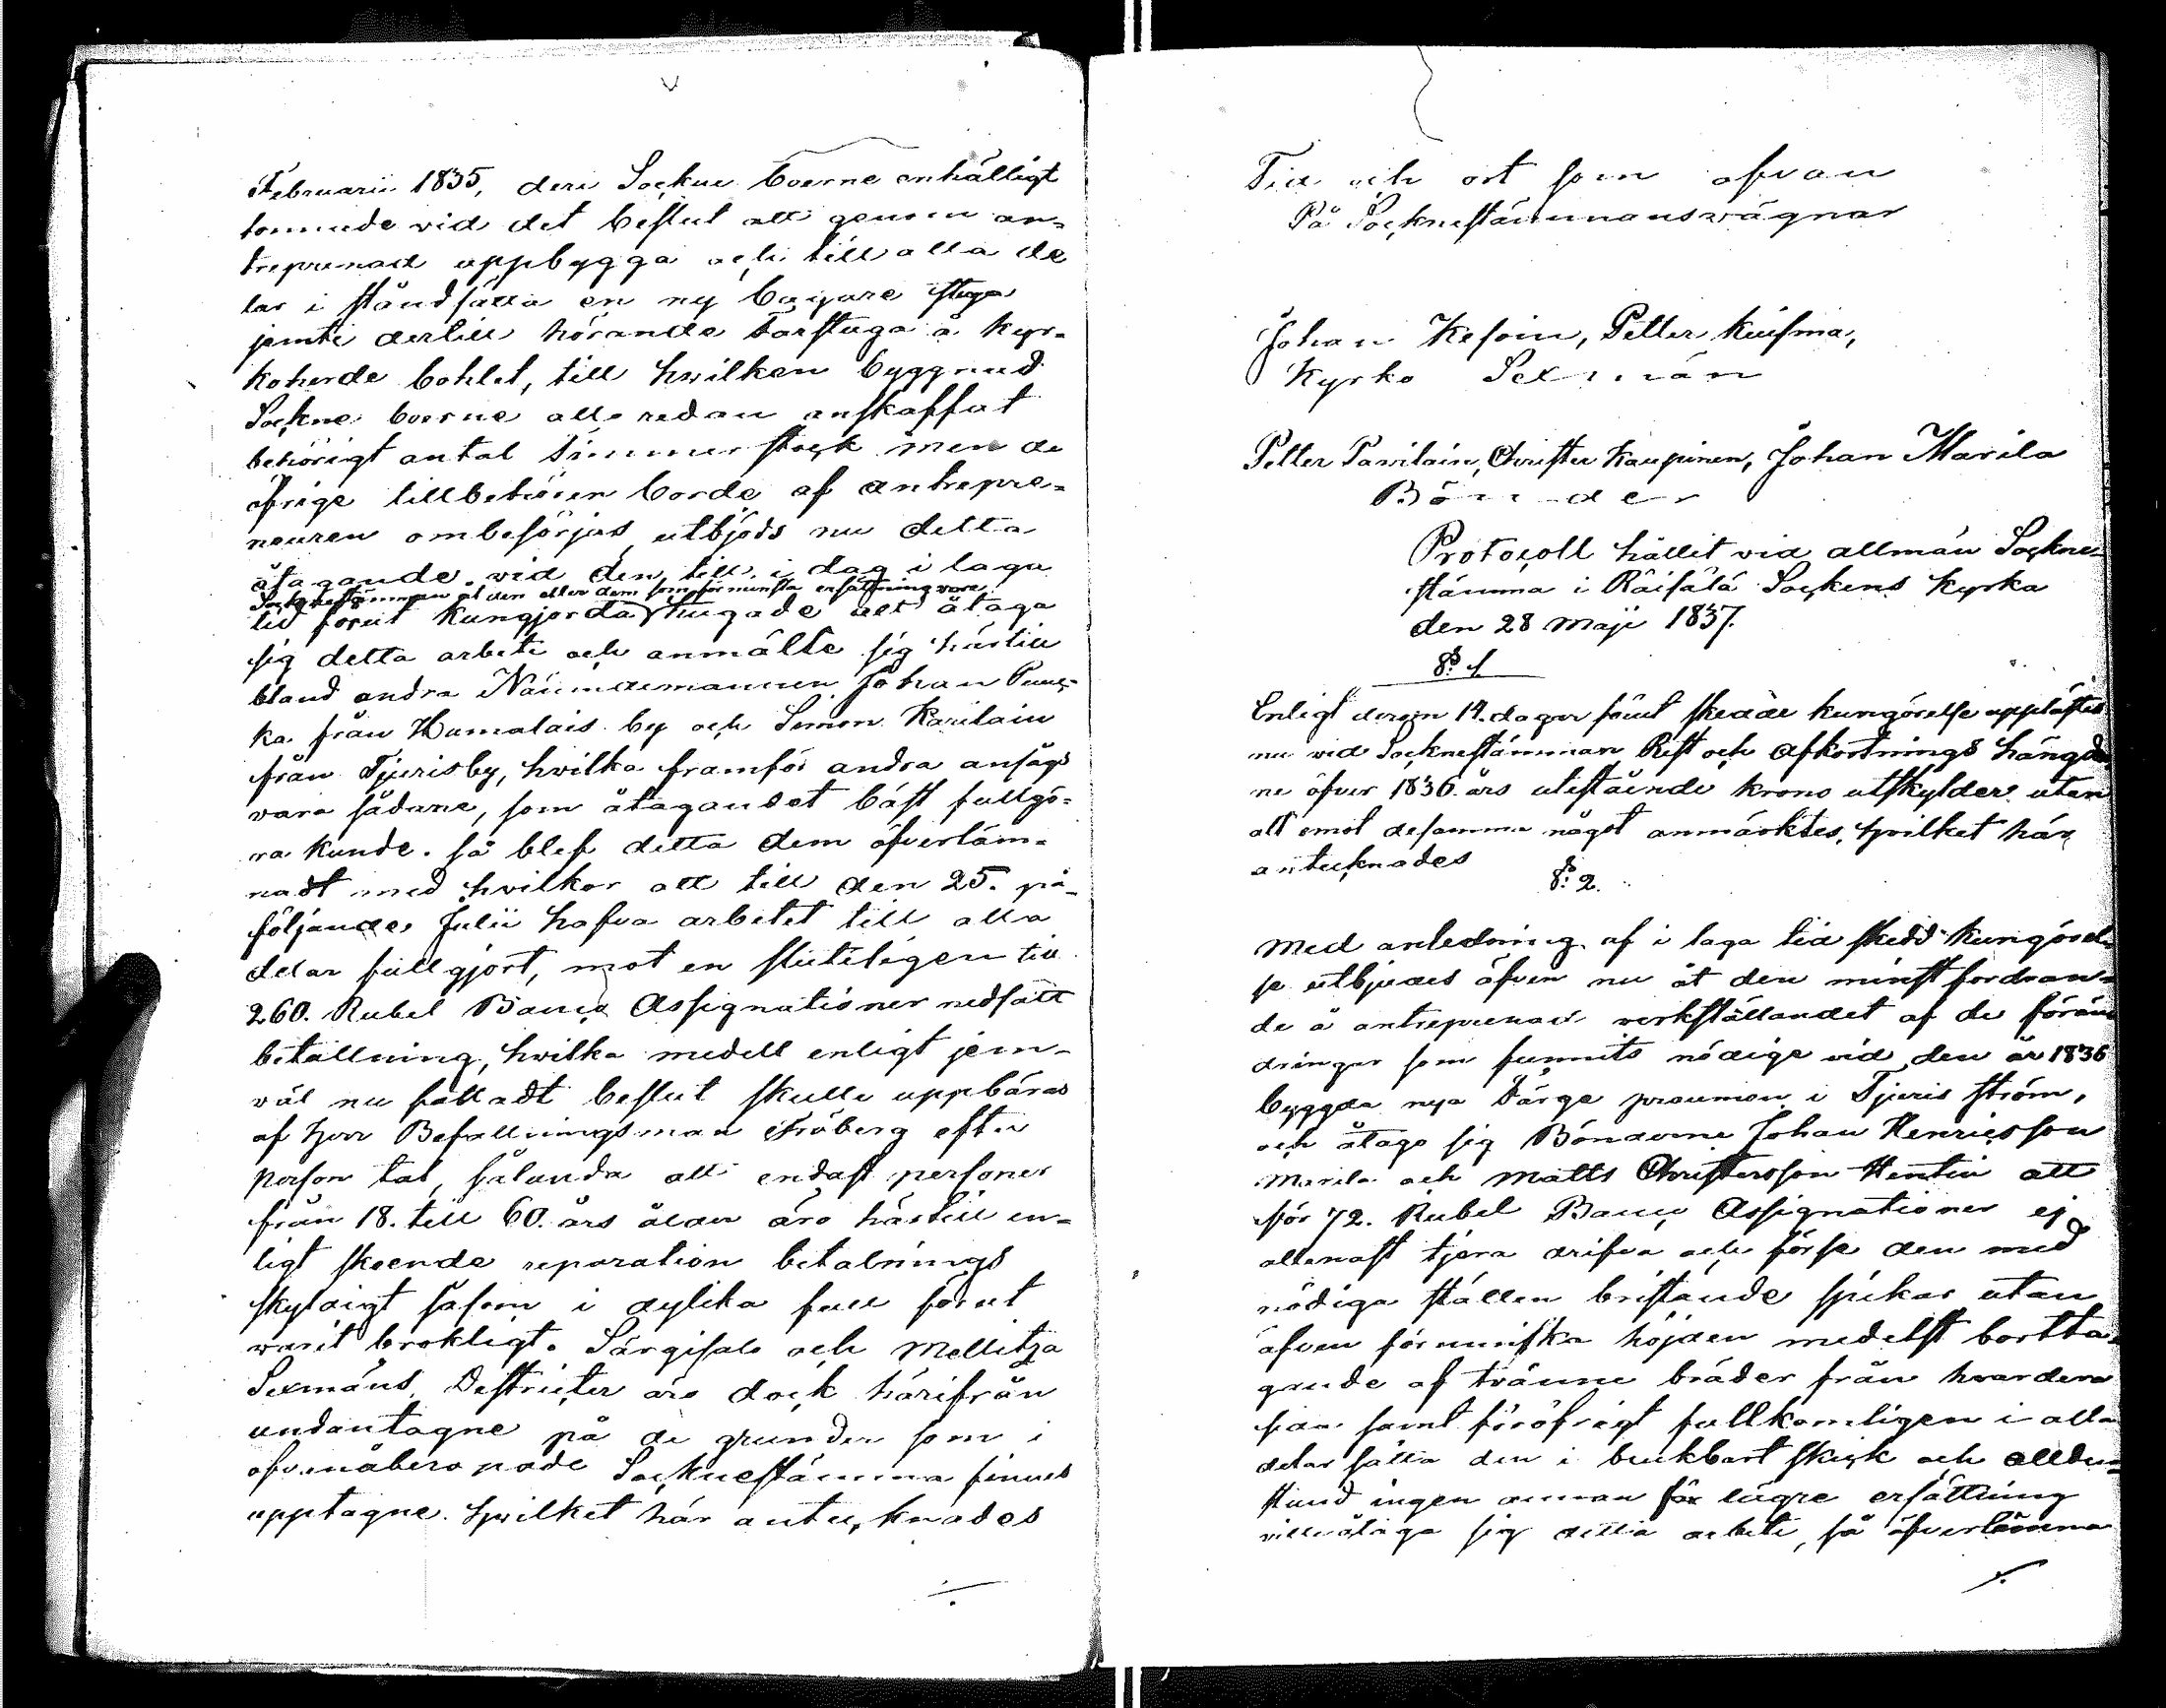 Februarii 1835, dere Sockne boerne enhälligt
stannade vid det beslut att genom an-
treprenad uppbygga och till alla de
lar i ståndsätta en ny bagare stuga
jemte dertill hörande Farstuga å Kyr-
koherde bohlet, till hwilken byggnad
Sockne boerne alle redan anskaffat
behörigt antal timmer stock men de
öfrige tillbehören borde af antrepre-
neuren ombesörjas, utbjöds nu detta
åtagande. vid den till i dag i laga
Sockne stämman åt den eller dem som för minsta ersättning vore
tid förut Kungjorda hugade att åtaga
sig detta arbete och anmälte sig härtill
bland andra Nämndemannen Johan Punc-
ka från Humalais by och Simon Karilain
från Tjurisby, hwilka framför andra ansågs
vara sådane, som åtagandet bäst fullgö-
ra kunde. så blef detta dem öfverläm-
nadt med hwilkor att till den 25. på-
följande Julii hafva arbetet till alla
delar fullgjort, mot en sluteligen till
260. Rubel Banco Assignationer nedsatt
betallning, hwilka medell enligt jem-
väl nu fälladt beslut skulle uppbäras
af Herr Befallningsman Fröberg efter
person tal, sålunda att endast personer
från 18. till 60. års ålder äro härtill en-
ligt skeende reparation betalnings
skyldigt såsom i dylika fall förut
warit brukligt. Särgisalo och Mellitza
Sexmäns Districter äro dock härifrån
undantagne på de grunder som i
ofvanåberopade Sockne stämma finnes
upptagne. Hwilket här antecknades
Tid och ort som ofvan
På Socknestämmanswägnar
Johan Kesoin, Petter Kuisma,
Kyrko Sexmän
Petter Pavilain, Christer Kaupinen, Johan Marila
Bönder
Protocoll hållit vid allmän Sockne-
stämma i Räisälä Sockens Kyrka
den 28 Maji 1837.
§: 1.
Enligt derom 14. dagar förut skedde kungörelse upplästes
nu vid Socknestämman Rest och Afkortnings längder
ne öfver 1836. års utestående krono utskylder. utan
att emot desamma något anmärktes, hwilket här
antecknades
§: 2.
Med anledning af i laga tid skedd kungörel-
se utbjudes äfven nu åt den minst fordran-
de å antreprenad verkställandet af de förän
dringar som funnits nödige vid den år 1836
byggda nya Färge pråmen i Tjuris ström,
och åtago sig Bönderne Johan Henricsson
Marila och Matts Christersson Hentin att
för 72. Rubel Banco Assignationer ej
allenast tjera drifva och förse den med
nödiga ställen bristande spikar utan
äfven förminska höjden medelst bortta-
gande af tvänne bräder från hvardera
sidan samt föröfrigt fullkomligen i alla
delar sätta den i brukbart skick och allden-
stund ingen annan för lägre ersättning
ville åtaga sig detta arbete, så öfverlämna